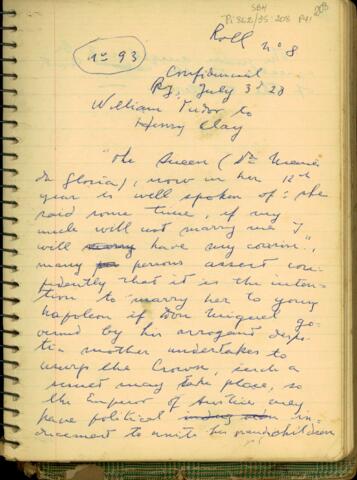 SBH
Pi 362/95-208 P41
208
Roll nº 8
nº 93
Confidencial
RJ, July 3d 28
William Tudor to
Henry Clay
"The Queen (Dna Maria
da Gloria), now in her 12th
year is well spoken of: she
said some time, if my
uncle will not marry me I
will marry have my cousin",
many persons assert con-
fidently that it is the inten-
tion to marry her to young
Napoleon if Don Miguel go-
verned by his arrogant despo-
tic mother undertakes to
usurp the Crown, such a
may take place, so
the Emperor of Austria may
have political in-
ducement to unite his grandchildren